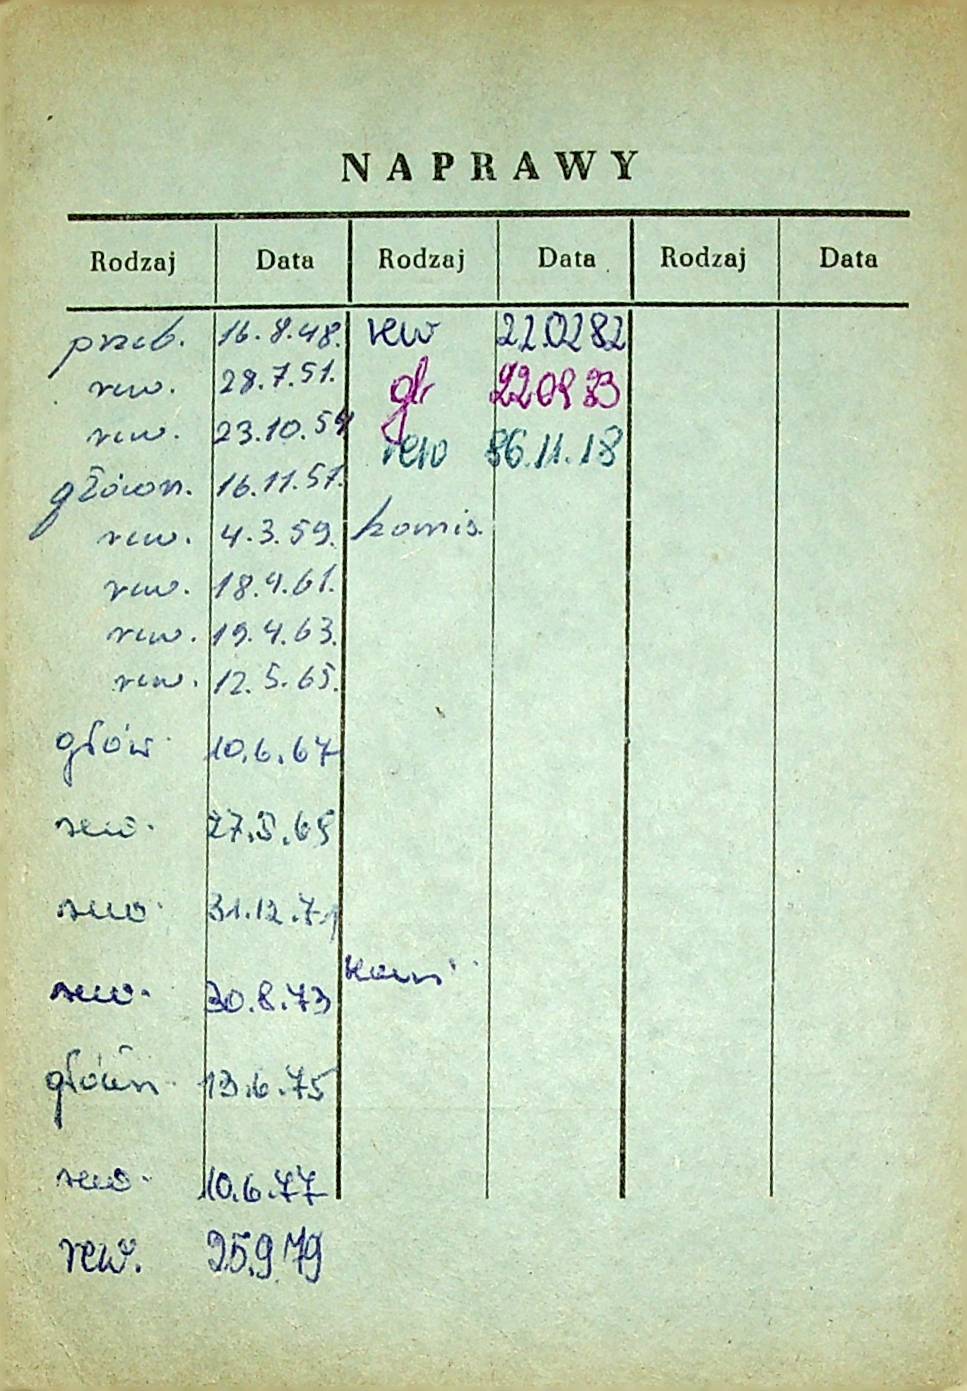 NAPRAWY
Rodzaj Data Rodzaj Data Rodzaj Data
przeb. 16.8.48. rew 22.02 82
rew. 28.7.51. gł 22 09 83
rew. 23.10.54 rew 86.11.18
główn. 16.11.57.
rew. 4.3.59. komis.
rew. 18.4.61.
rew. 19.4.63.
rew. 12.5.65.
głów 10.6.67
rew. 27.5.69
rew. 31.12.71
rew. 30.8.73
główn. 13.6.75
rew. 10.6.77
rew. 25.9.79